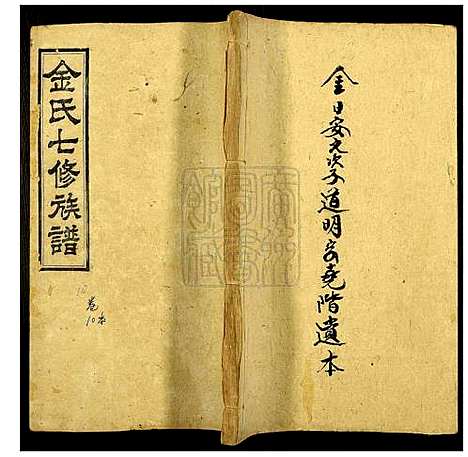 金氏七修族譜
卷
10本
金日安九次子道明字堯階遺本